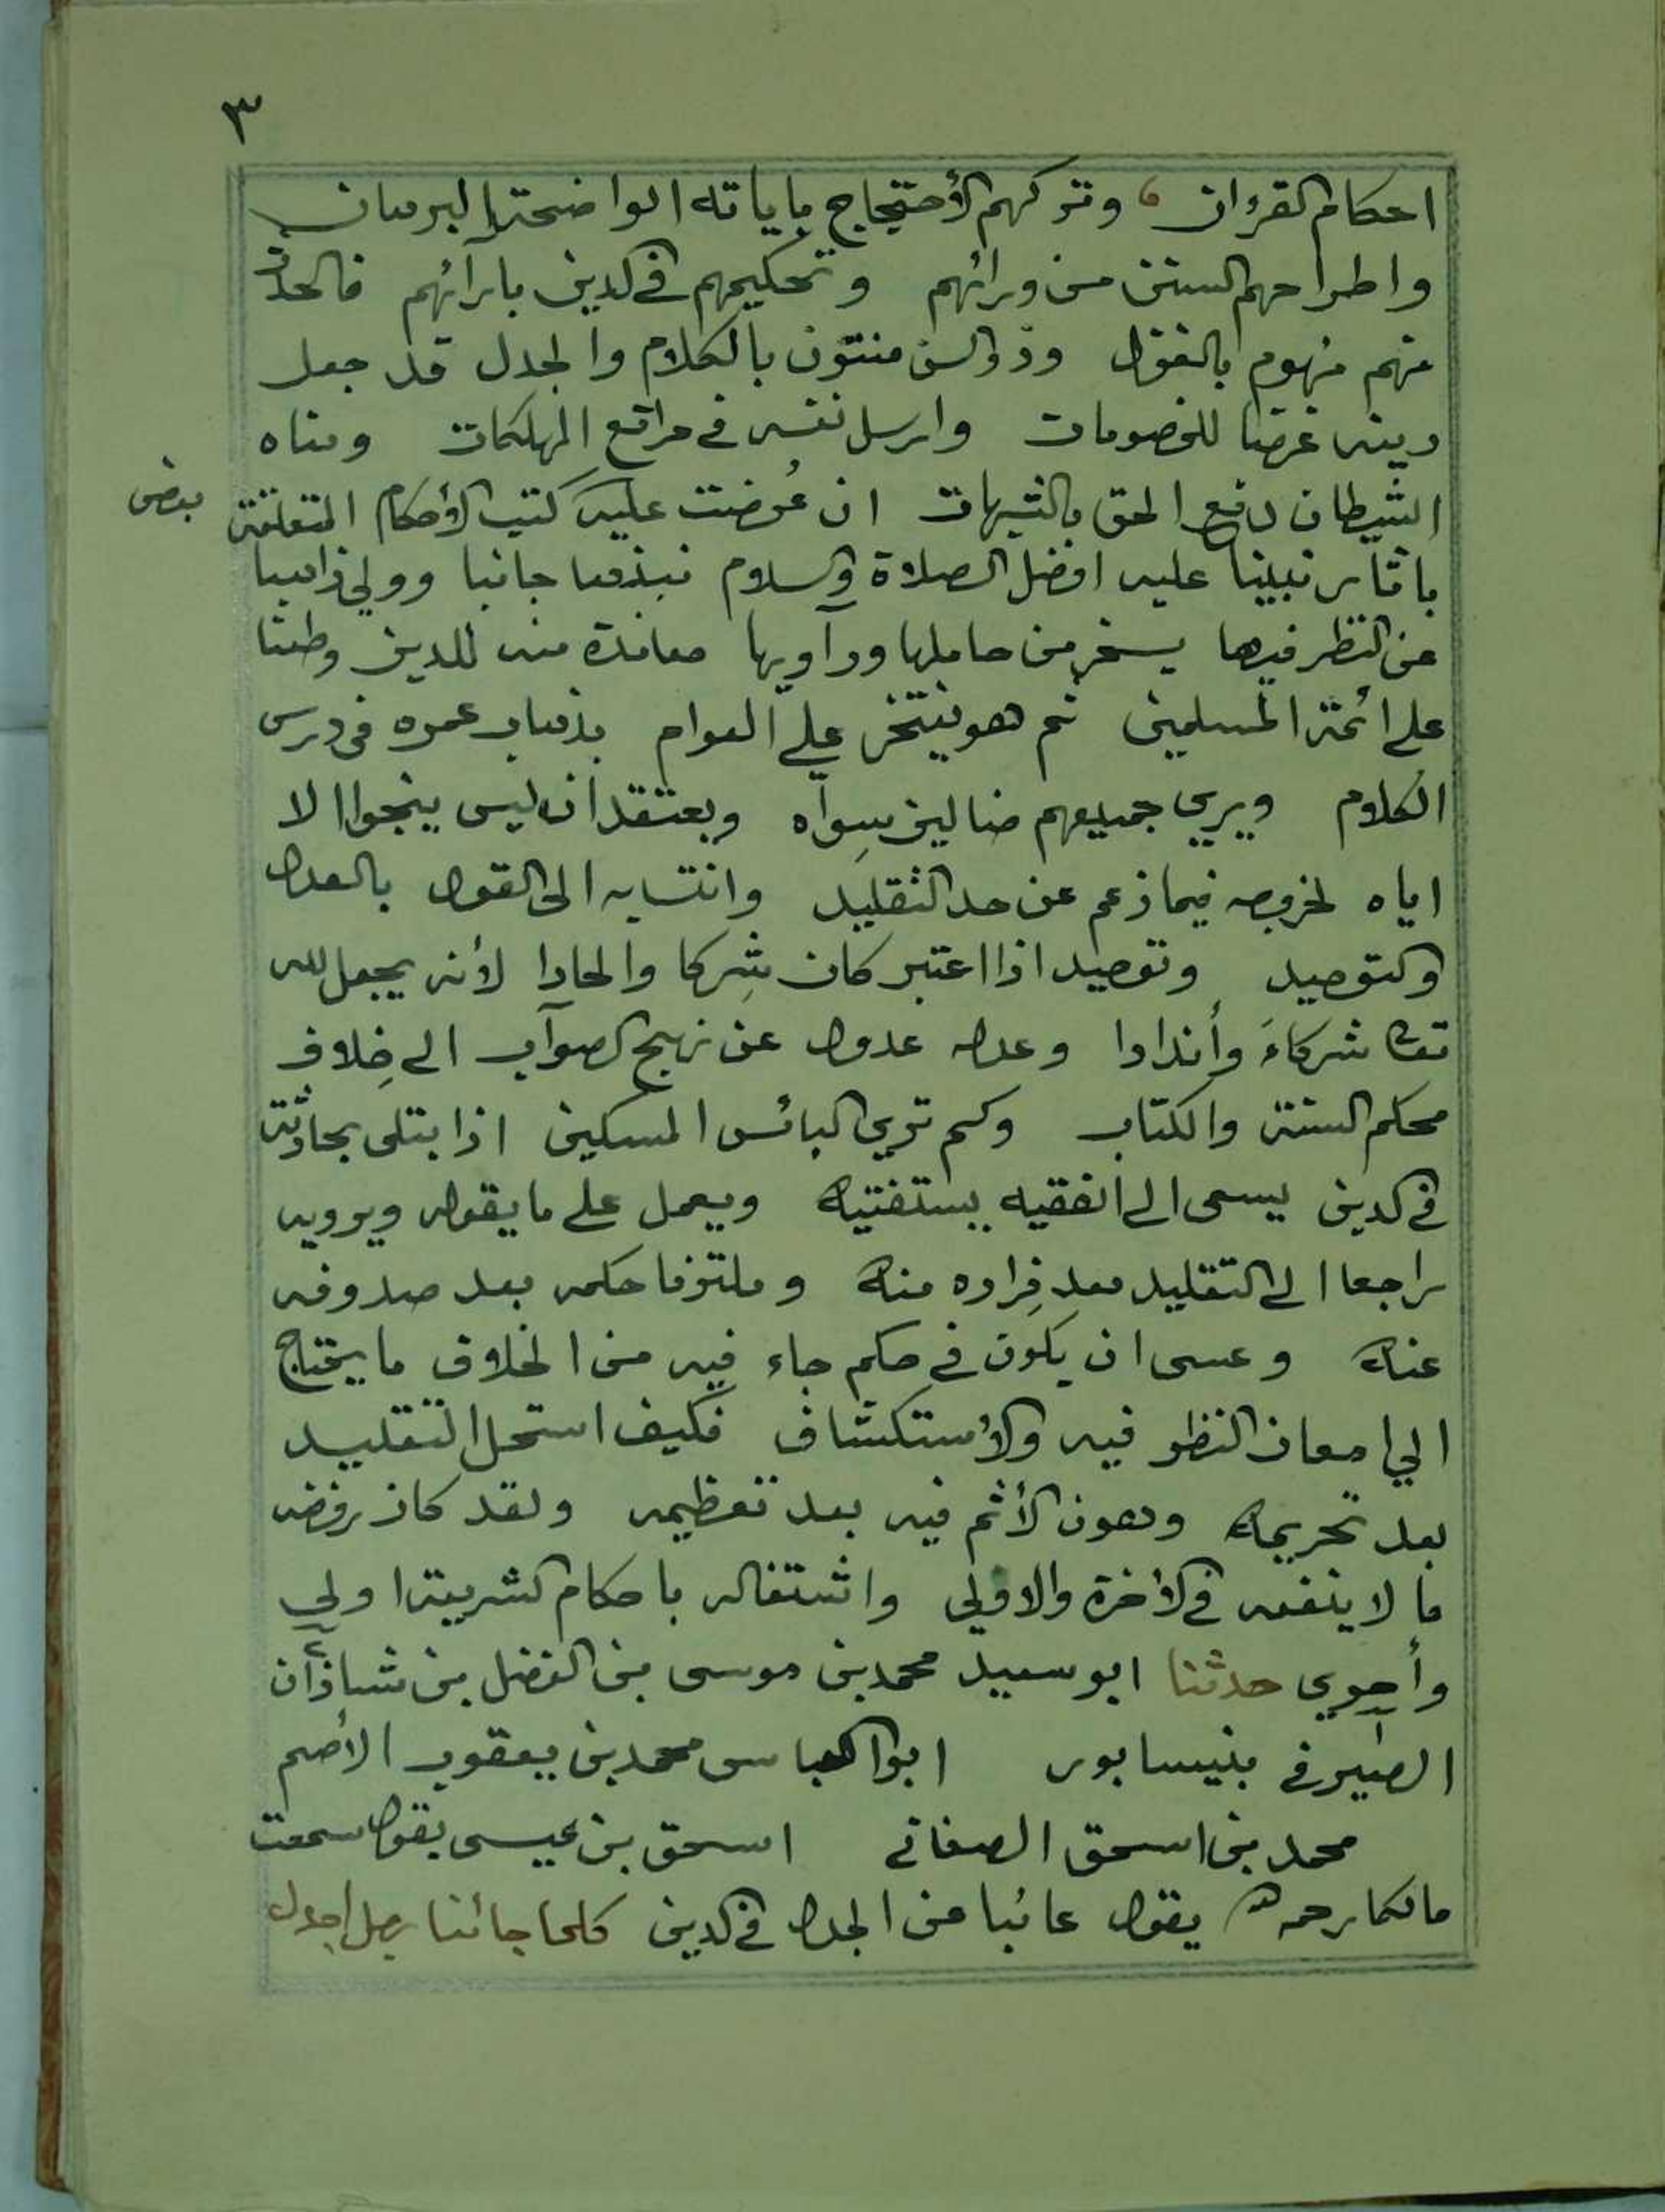 ٣
احكام القرءان وتركهم الأحتجاج بأياته الواضحة البرهان
واطراحهم السنن من ورائهم وتحكيمهم في الدين بآرائهم فالحدث
منهم منهوم بالغزل وذو السن مفتون بالكلام والجدل قد جعل
دينه غرضا للخصومات وارسل نفسه في مراتع الهلكات ومناه
الشيطان دفع الحق بالشبهات ان عُرضت عليه كتب الأحكام المتعلقة
بعض
باثار نبينا عليه افضل الصلاة والسلام نبذها جانبا وولي ذاهبا
عن النظر فيها يسخر من حاملها ورآويها معاندة منه للدين وطعنا
على ائمة المسلمين ثم هو يفتخر علي العوام بذهاب عمره في درس
الكلام ويري جميعهم ضالين سِوآه ويعتقد ان ليس ينجوا الا
اياه لخروجه فيما زعم عن حد التقليد وانتسابه الى القول بالعدل
والتوحيد وتوحيده اذا اعتبر كان شِركا والحادا لأنه يجعل لله
تعا شركاءَ وأندادا وعدله عدول عن نهج الصوآب الى خِلاف
محكم السنة والكتاب وكم تري البائس المسكين اذا بتلى بحادثة
في الدين يسعى الى الفقيه يستفتيه ويعمل على ما يقوله ويرويه
راجعا الى التقليد بعد فِراره منه وملتزما حكمه بعد صدوفه
عنه وعسى ان يكون في حكم جاء فيه من الخلاف ما يحتاج
الي امعان النظر فيه والأستكشاف فكيف استحل التقليد
بعد تحريمه وهون الأثم فيه بعد تعظيمه ولقد كان رفضه
ما لا ينفعه في الأخرة والاولي واشتغاله باحكام الشريعة اولى
وأحري حدثنا ابو سعيد محمد بن موسى بن الفضل بن شاذآن
الصيرفي بنيسابور ابوا العباس محمد بن يعقوب الأصم
محمد بن اسحق الصغاني اسحق بن عيسى يقول سمعت
مالكا رحمه يقول عائبا من الجدل في الدين كلما جائنا رجل اجدل